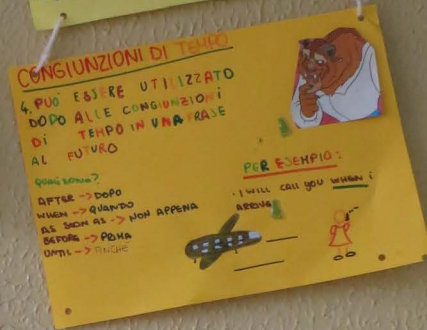 CONGIUNZIONI DI TEMPO
4. PUÒ ESSERE UTILIZZATO
DOPO ALLE CONGIUNZIONI
DI TEMPO IN UNA FRASE
AL FUTURO
QUALI SONO?
AFTER -> DOPO
WHEN -> QUANDO
AS SOON AS -> NON APPENA
BEFORE -> PRIMA
UNTIL -> FINCHÈ
PER ESEMPIO:
• I WILL CALL YOU WHEN i
ARRIVE